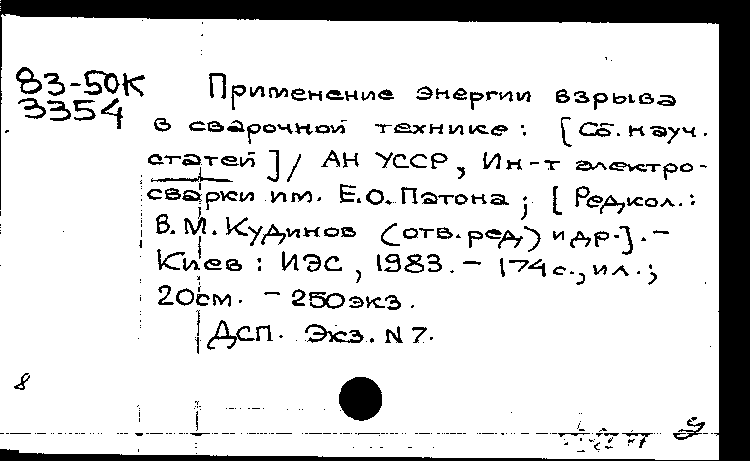 83-50К
3354
Применение энергии взрыва
в сварочной технике: [Сб. науч.
статей]/ АН УССР, Ин-т электро-
сварки им. Е.О. Патона; [Редкол.:
В.М. Кудинов (отв. ред) и др.]. -
Киев: ИЭС, 1983. - 174с., ил.;
20см. - 250экз.
ДСП. Экз. N 7.
8